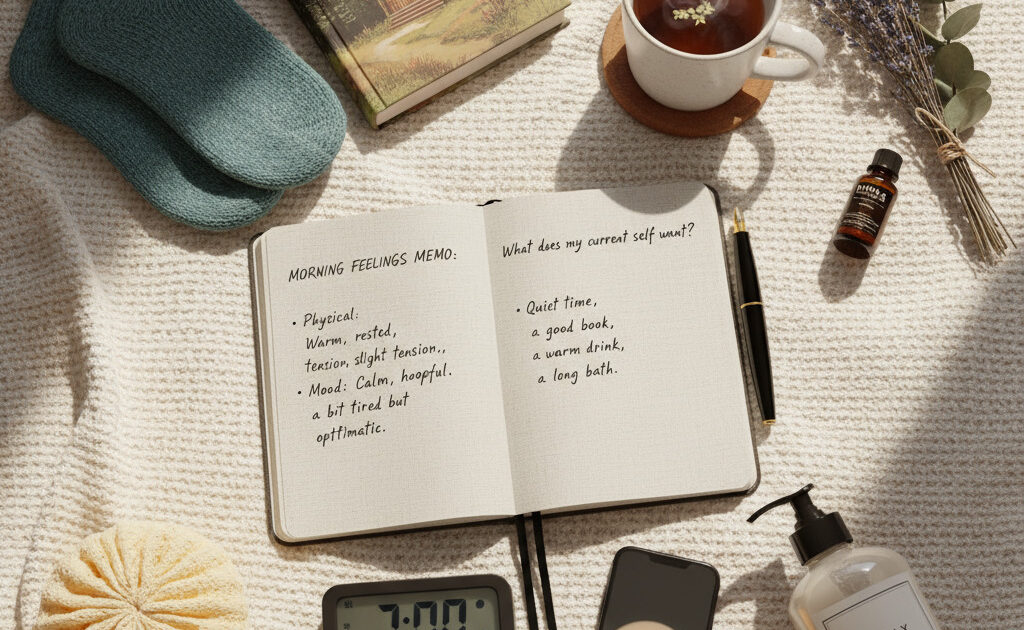 MORNING FEELINGS MEMO:
• Physical:
Warm, rested,
tension, slight tension.,
• Mood: Calm, hoopful.
a bit tired but
What does my current self want?
• Quiet time,
a good book,
a warm drink,
a long bath.
7:00